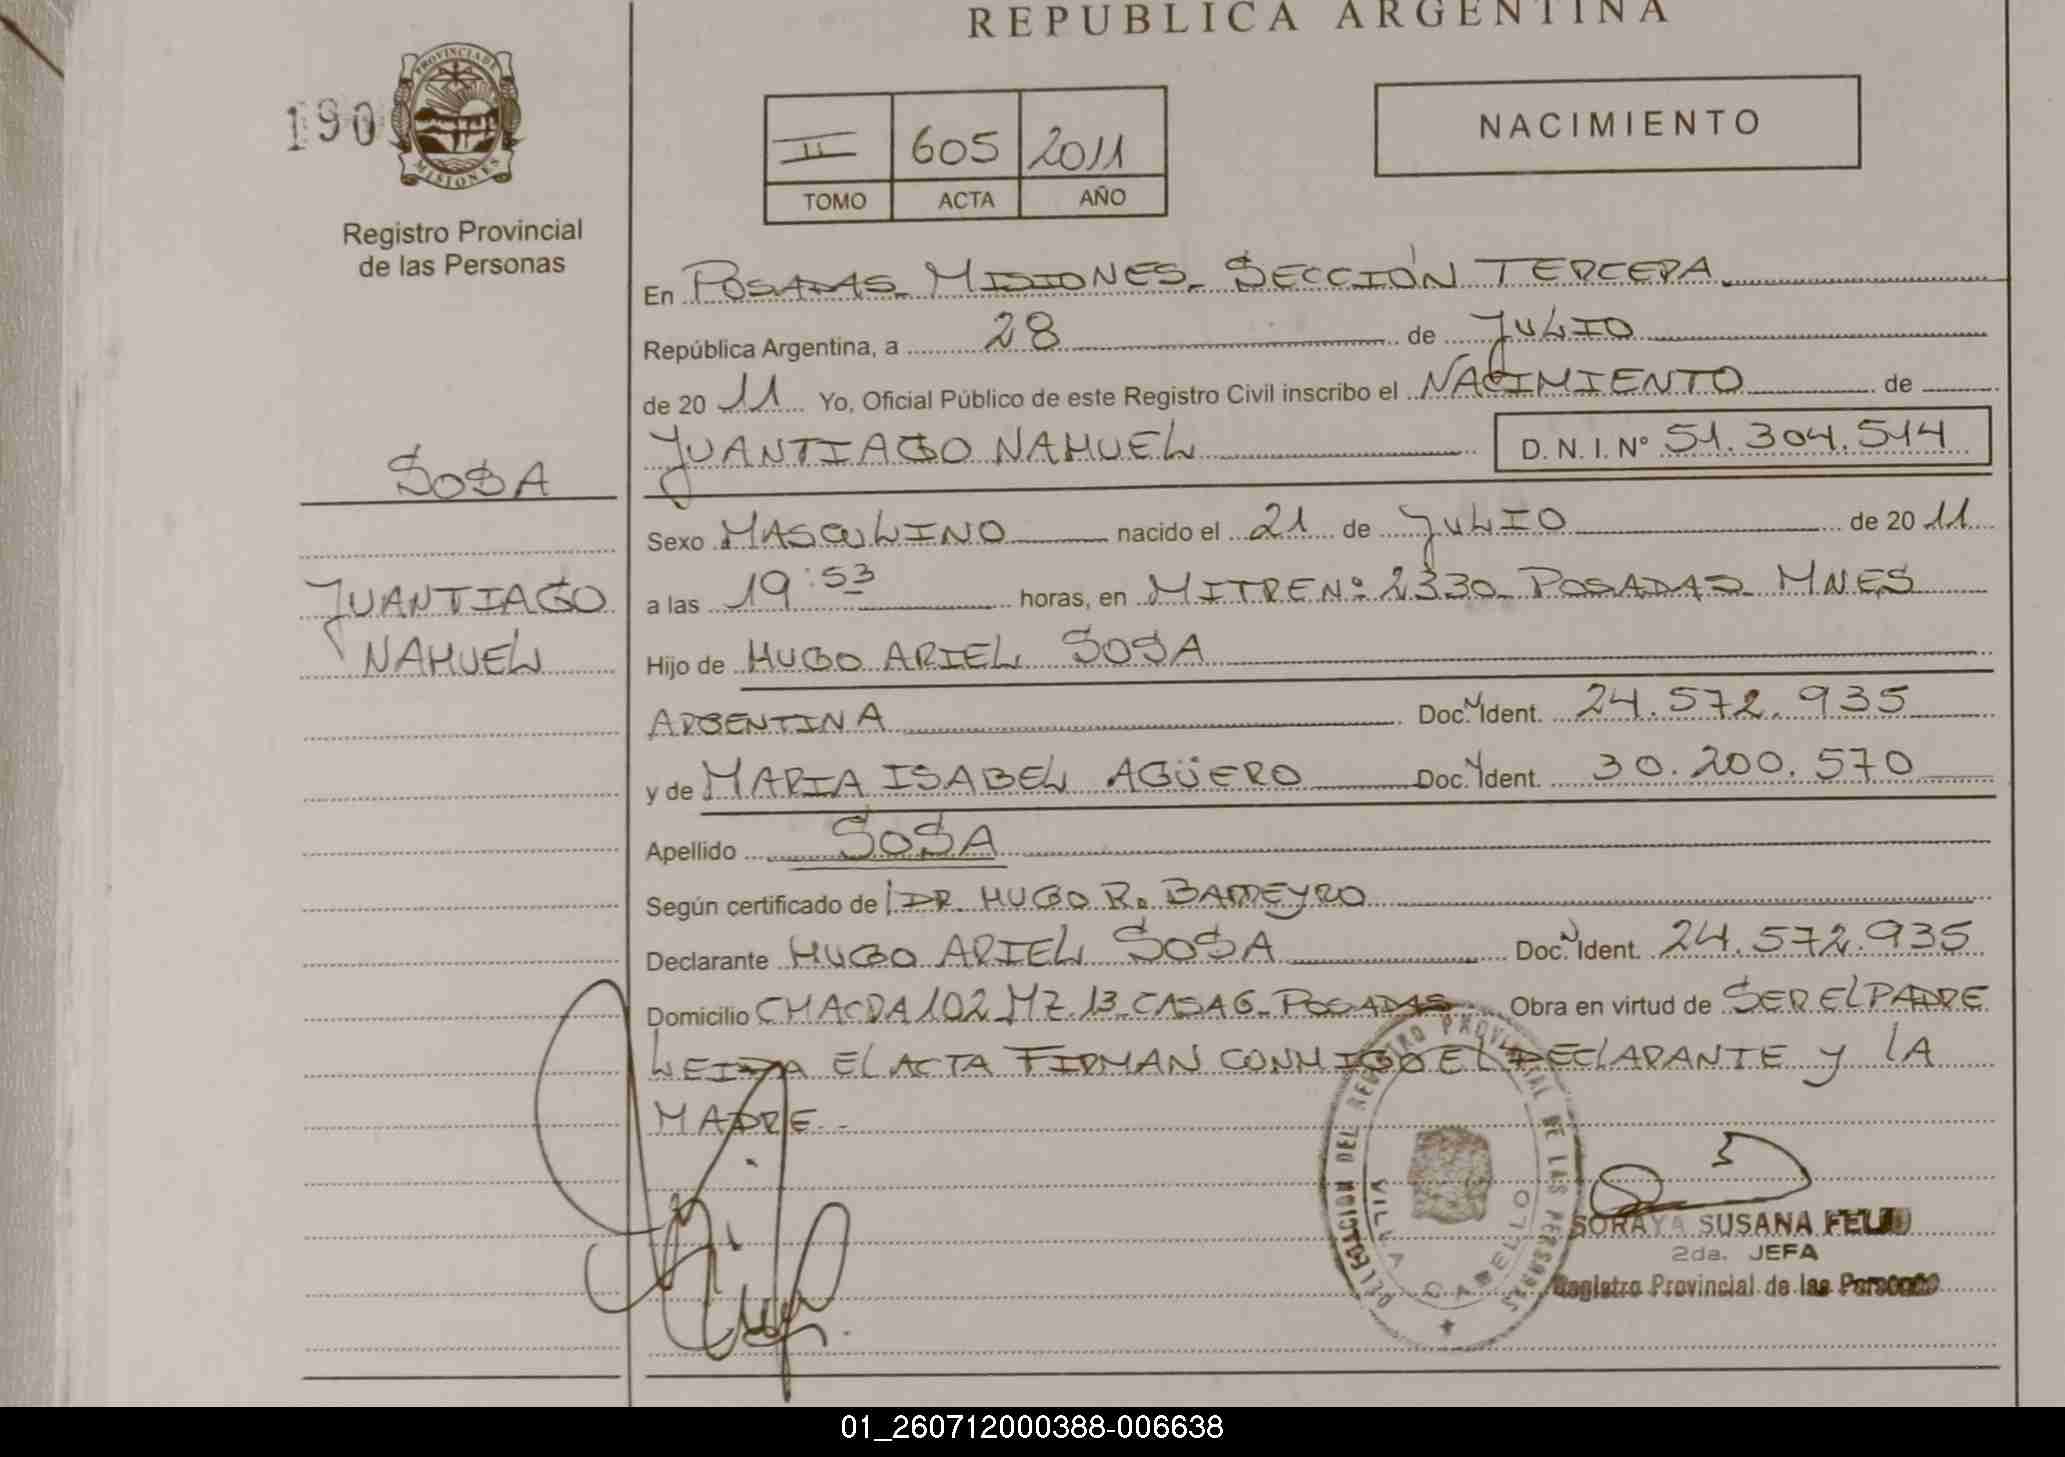 REPUBLICA ARGENTINA
190
PROVINCIA DE
MISIONES
Registro Provincial
de las Personas
II 605 2011
TOMO ACTA AÑO
NACIMIENTO
En POSADAS MISIONES. SECCIÓN TERCERA
República Argentina, a 28 de JULIO
de 20 11 Yo, Oficial Público de este Registro Civil inscribo el NACIMIENTO de
JUANTIAGO NAHUEL D.N.I.Nº 51.304.514
SOSA
Sexo MASCULINO nacido el 21 de JULIO de 20 11
JUANTIAGO
NAHUEL
a las 19:53 horas, en MITRE Nº 2330 POSADAS MNES
Hijo de HUGO ARIEL SOSA
ARGENTINA Doc. Ident. 24.572.935
y de MARIA ISABEL AGÜERO Doc. Ident. 30.200.570
Apellido SOSA
Según certificado de DR. HUGO R.
Declarante HUGO ARIEL SOSA Doc. Ident. 24.572.935
Domicilio CHACRA 102 MZ.13 CASA 6 POSADAS Obra en virtud de SER EL PADRE
LEIDA EL ACTA FIRMAN CONMIGO EL DECLARANTE Y LA
MADRE.-
DELEGACION DEL REGISTRO PROVINCIAL DE LAS PERSONAS
VILLA CABELLO
SORAYA SUSANA
2da. JEFA
Registro Provincial de las Personas
01_260712000388-006638